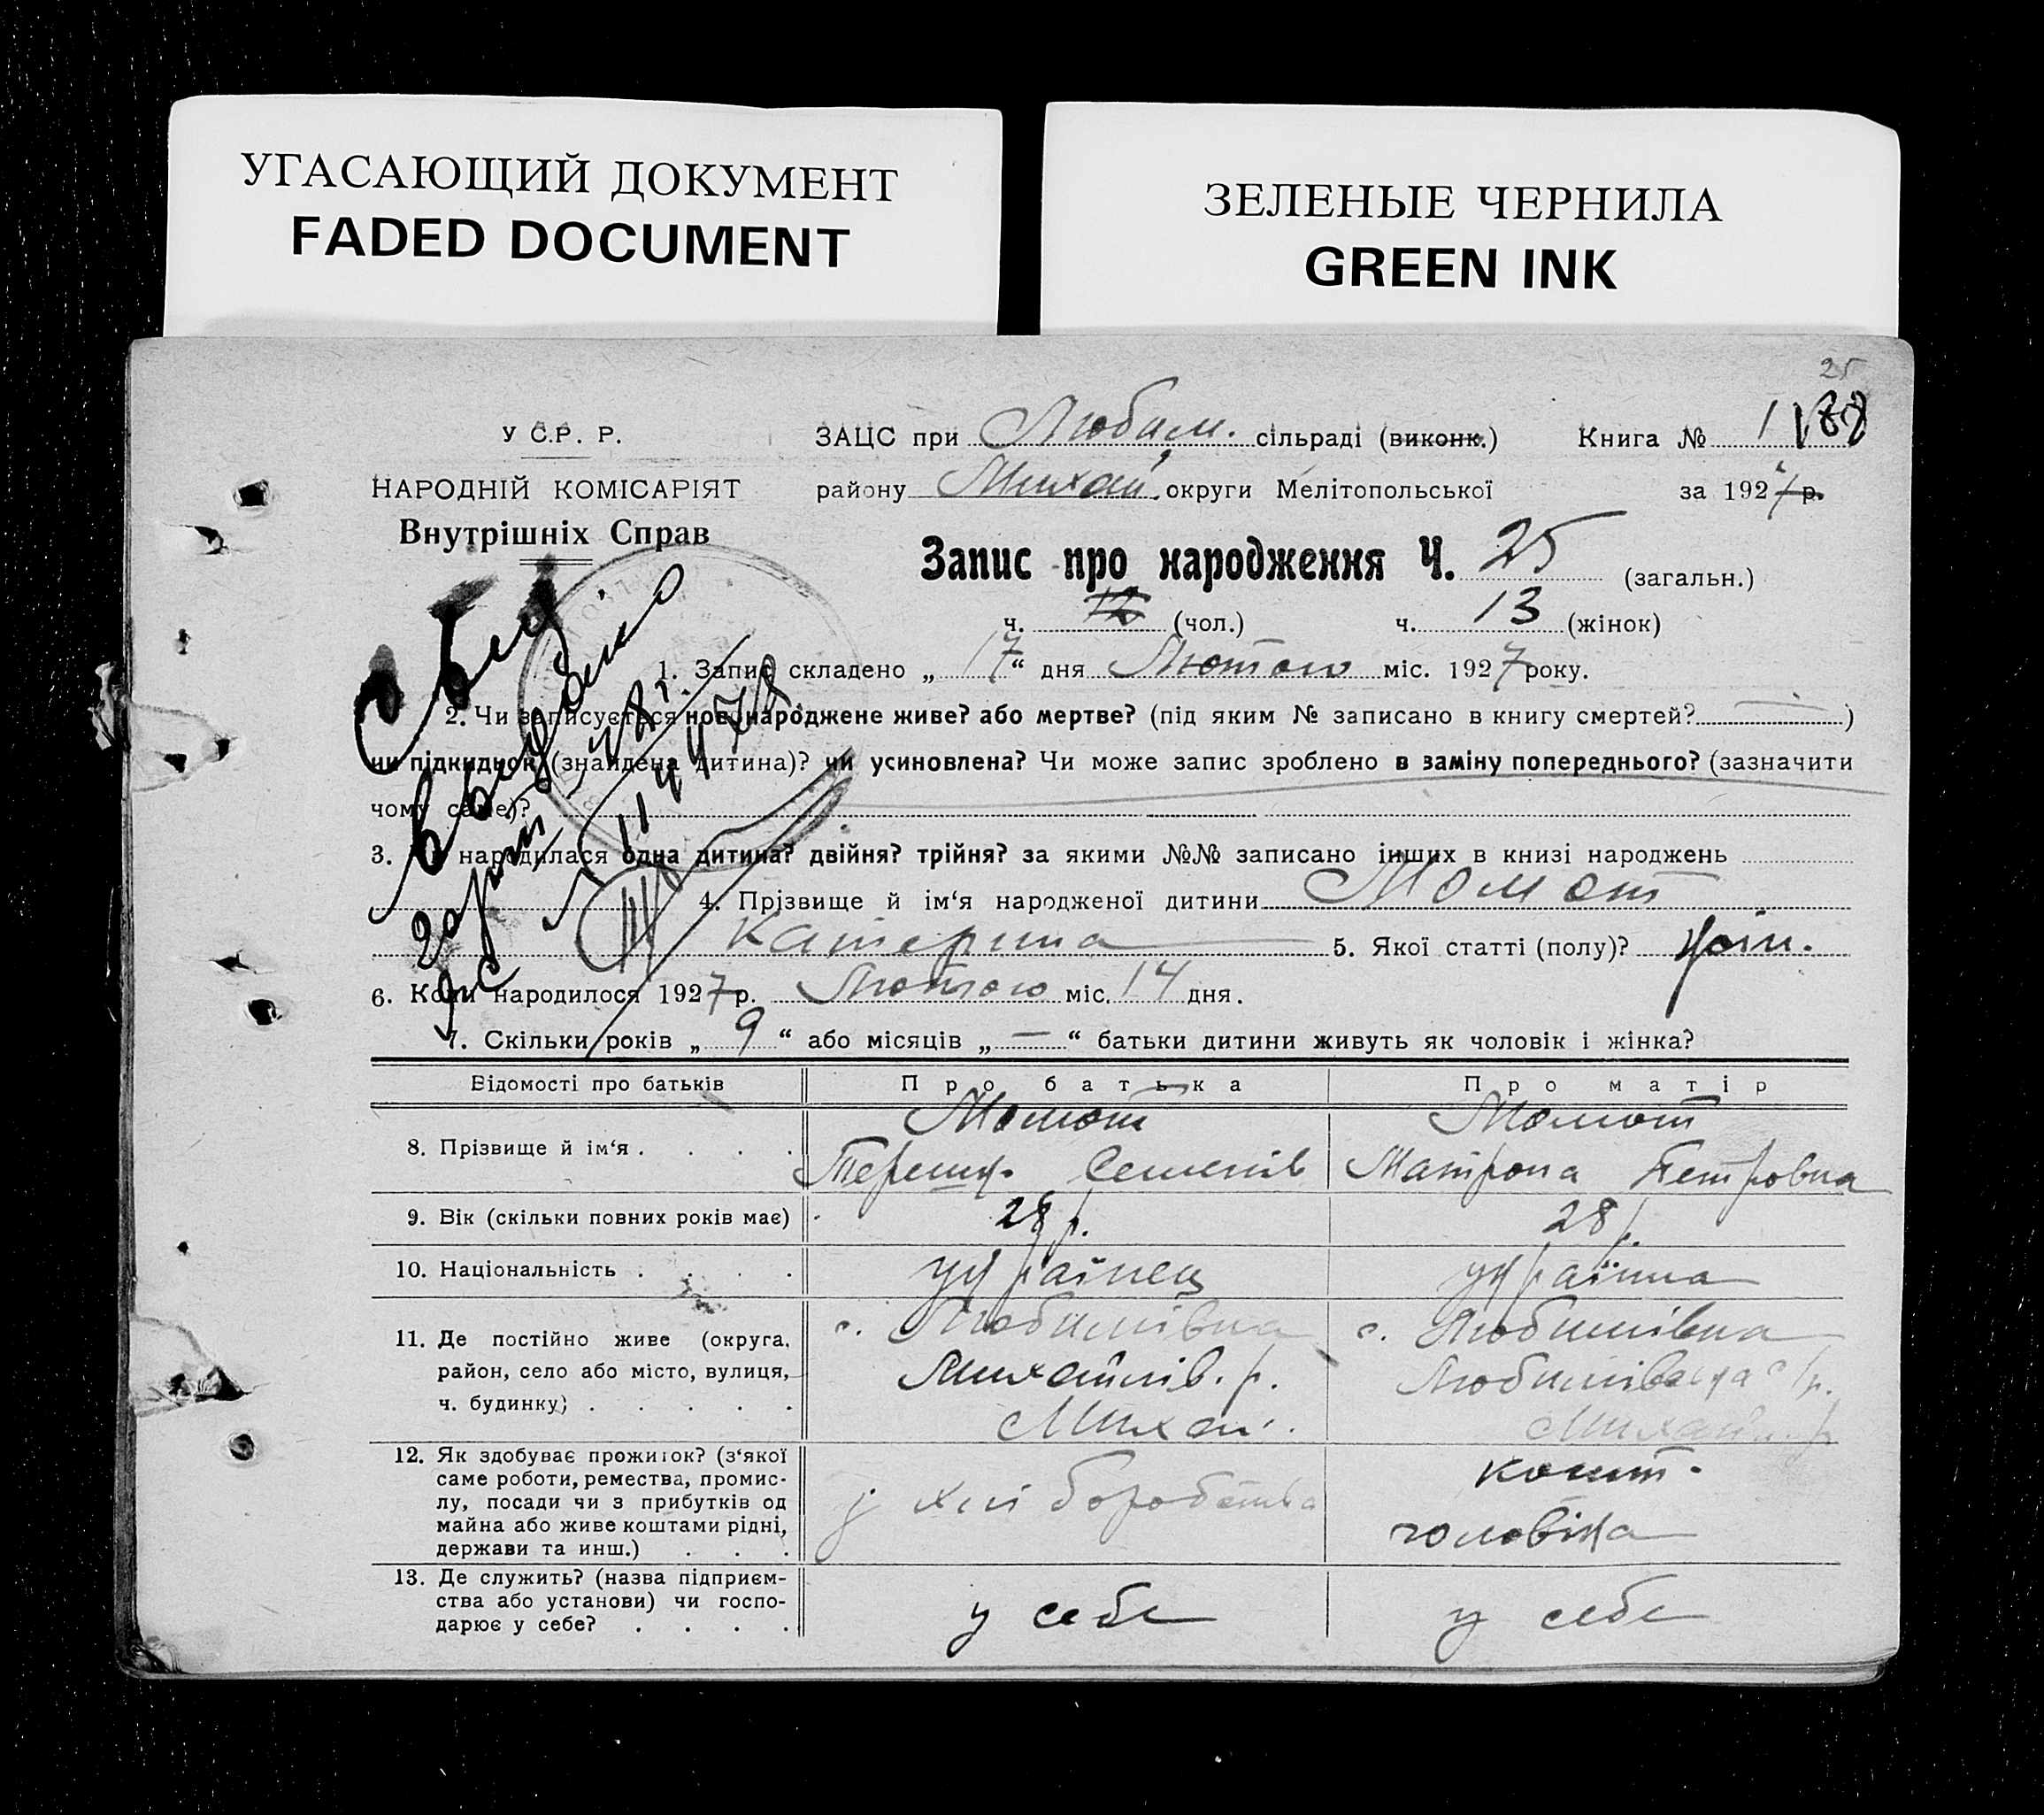 УГАСАЮЩИЙ ДОКУМЕНТ
FADED DOCUMENT
ЗЕЛЕНЫЕ ЧЕРНИЛА
GREEN INK
25
У С.Р. Р.
НАРОДНІЙ КОМІСАРІЯТ
Внутрішніх Справ
ЗАЦС при Любим. сільраді (виконк.) Книга № 1
району Михай. округи Мелітопольської за 1927 р.
Запис про народження Ч. 25 (загальн.)
ч. 12 (чол.) ч. 13 (жінок)
1. Запис складено „ 17 “ дня Лютого міс. 1927 року.
2. Чи записується новонароджене живе? або мертве? (під яким № записано в книгу смертей? — )
чи підкидьок (знайдена дитина)? чи усиновлена? Чи може запис зроблено в заміну попереднього? (зазначити
чому саме)?
3. Чи народилася одна дитина? двійня? трійня? за якими №№ записано інших в книзі народжень
4. Прізвище й ім‘я народженої дитини Момот
Катерина 5. Якої статті (полу)? жін.
6. Коли народилося 1927 р. Лютого міс. 14 дня.
7. Скільки років „ 9 “ або місяців „ — “ батьки дитини живуть як чоловік і жінка?
Відомості про батьків Про батька Про матір
8. Прізвище й ім‘я . . . . Момот Момот
Семенів Матрона Петровна
9. Вік (скільки повних років має) 28 р. 28 р.
10. Національність . . . . українець українка
11. Де постійно живе (округа, район, село або місто, вулиця, ч. будинку) . . . . .
с. Любимівка с. Любимівка
Михайлів. р. р.
Михай. Михайл. р
12. Як здобуває прожиток? (з‘якої
саме роботи, ремества, промис-
лу, посади чи з прибутків од
майна або живе коштами рідні,
держави та инш.) . . .
хліборобства
кошт.
чоловіка
13. Де служить? (назва підприєм-
ства або установи) чи госпо-
дарює у себе? . . . .
у себе у себе